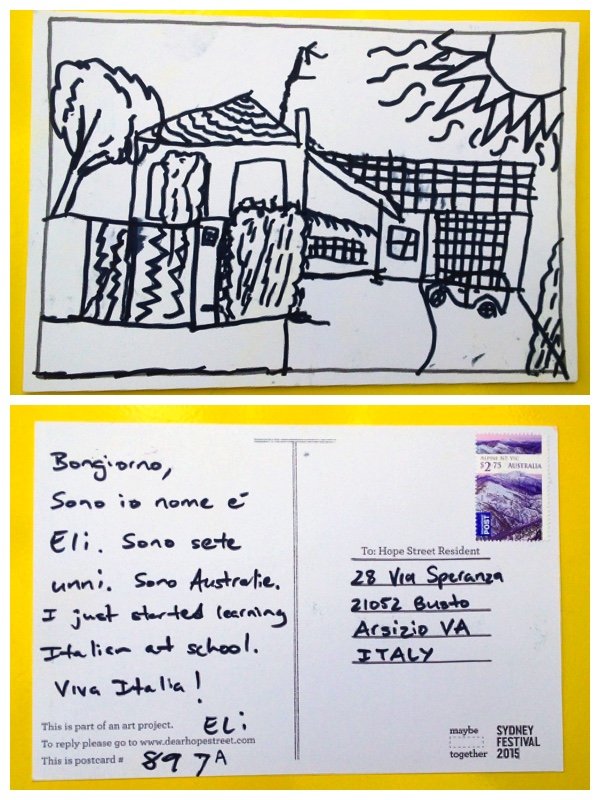 Bongiorno,
Sono io nome é
Eli. Sono sete
unni. Sono Australie.
I just started learning
Italian at school.
Viva Italia!
Eli
This is part of an art project.
To reply please go to www.dearhopestreet.com
This is postcard # 897A
ALPINE NP, VIC
$2.75 AUSTRALIA
POST
To: Hope Street Resident
28 Via Speranza
21052 Busto
Arsizio VA
ITALY
maybe
together
SYDNEY
FESTIVAL
2015